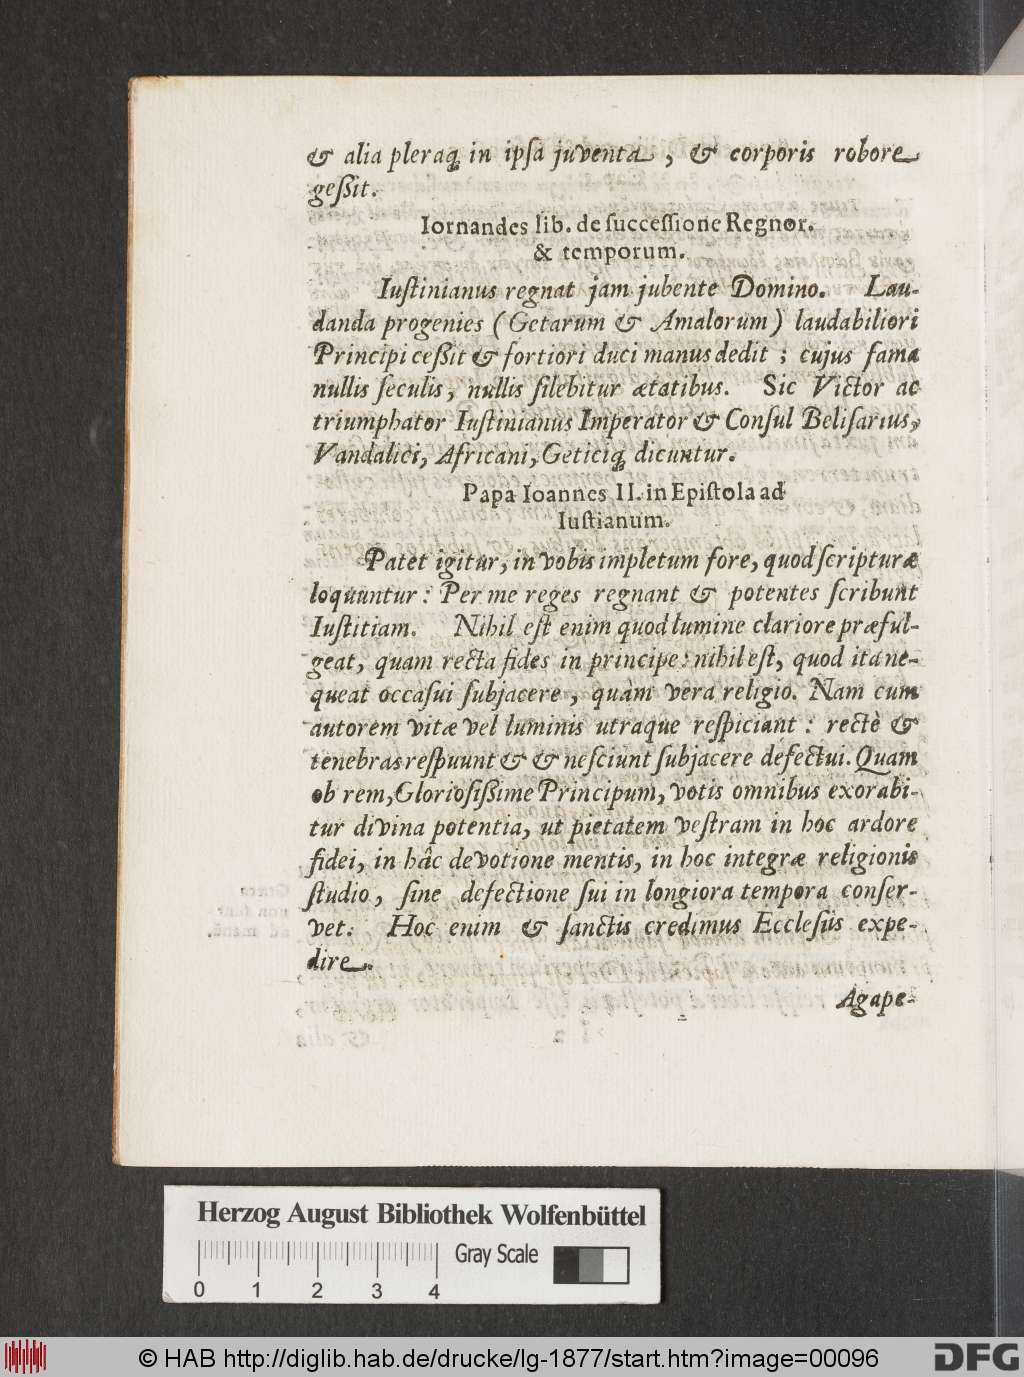 & alia pleraq; in ipſa juventa, & corporis robore
geßit.
Iornandes lib. de ſucceſſione Regnor.
& temporum.
Iuſtinianus regnat jam jubente Domino. Lau-
danda progenies (Getarum & Amalorum) laudabiliori
Principi ceßit & fortiori duci manus dedit; cujus fama
nullis ſeculis, nullis ſilebitur ætatibus. Sic Victor ac
triumphator Iuſtinianus Imperator & Conſul Beliſarius,
Vandalici, Africani, Geticiq; dicuntur.
Papa Ioannes II. in Epiſtola ad
Iuſtianum.
Patet igitur, in vobis impletum fore, quod ſcripturæ
loquuntur: Per me reges regnant & potentes ſcribunt
Iuſtitiam. Nihil eſt enim quod lumine clariore præful-
geat, quam recta fides in principe: nihil eſt, quod ita ne-
queat occaſui ſubjacere, quàm vera religio. Nam cum
autorem vitæ vel luminis utraque reſpiciant: rectè &
tenebras reſpuunt & & neſciunt ſubjacere defectui. Quam
ob rem, Glorioſißime Principum, votis omnibus exorabi-
tur divina potentia, ut pietatem veſtram in hoc ardore
fidei, in hâc devotione mentis, in hoc integræ religionis
ſtudio, ſine defectione ſui in longiora tempora conſer-
vet. Hoc enim & ſanctis credimus Eccleſiis expe-
dire.
Agape-
Herzog August Bibliothek Wolfenbüttel
Gray Scale
0 1 2 3 4
© HAB http://diglib.hab.de/drucke/lg-1877/start.htm?image=00096
DFG